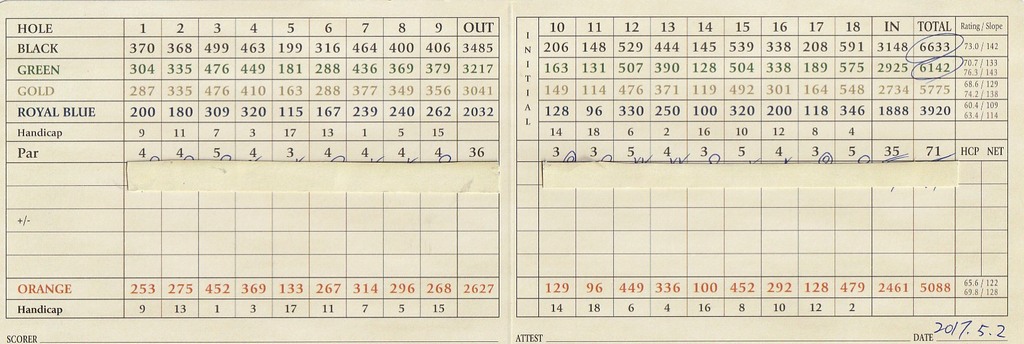 HOLE 1 2 3 4 5 6 7 8 9 OUT INITIAL 10 11 12 13 14 15 16 17 18 IN TOTAL Rating / Slope
BLACK 370 368 499 463 199 316 464 400 406 3485 206 148 529 444 145 539 338 208 591 3148 6633 73.0 / 142
GREEN 304 335 476 449 181 288 436 369 379 3217 163 131 507 390 128 504 338 189 575 2925 6142 70.7 / 133 76.3 / 143
GOLD 287 335 476 410 163 288 377 349 356 3041 149 114 476 371 119 492 301 164 548 2734 5775 68.6 / 129 74.2 / 138
ROYAL BLUE 200 180 309 320 115 167 239 240 262 2032 128 96 330 250 100 320 200 118 346 1888 3920 60.4 / 109 63.4 / 114
Handicap 9 11 7 3 17 13 1 5 15 14 18 6 2 16 10 12 8 4
Par 4 4 5 4 3 4 4 4 4 36 3 3 5 4 3 5 4 3 5 35 71 HCP NET
+/-
ORANGE 253 275 452 369 133 267 314 296 268 2627 129 96 449 336 100 452 292 128 479 2461 5088 65.6 / 122 69.8 / 128
Handicap 9 13 1 3 17 11 7 5 15 14 18 6 4 16 8 10 12 2
SCORER ATTEST DATE 2017.5.2